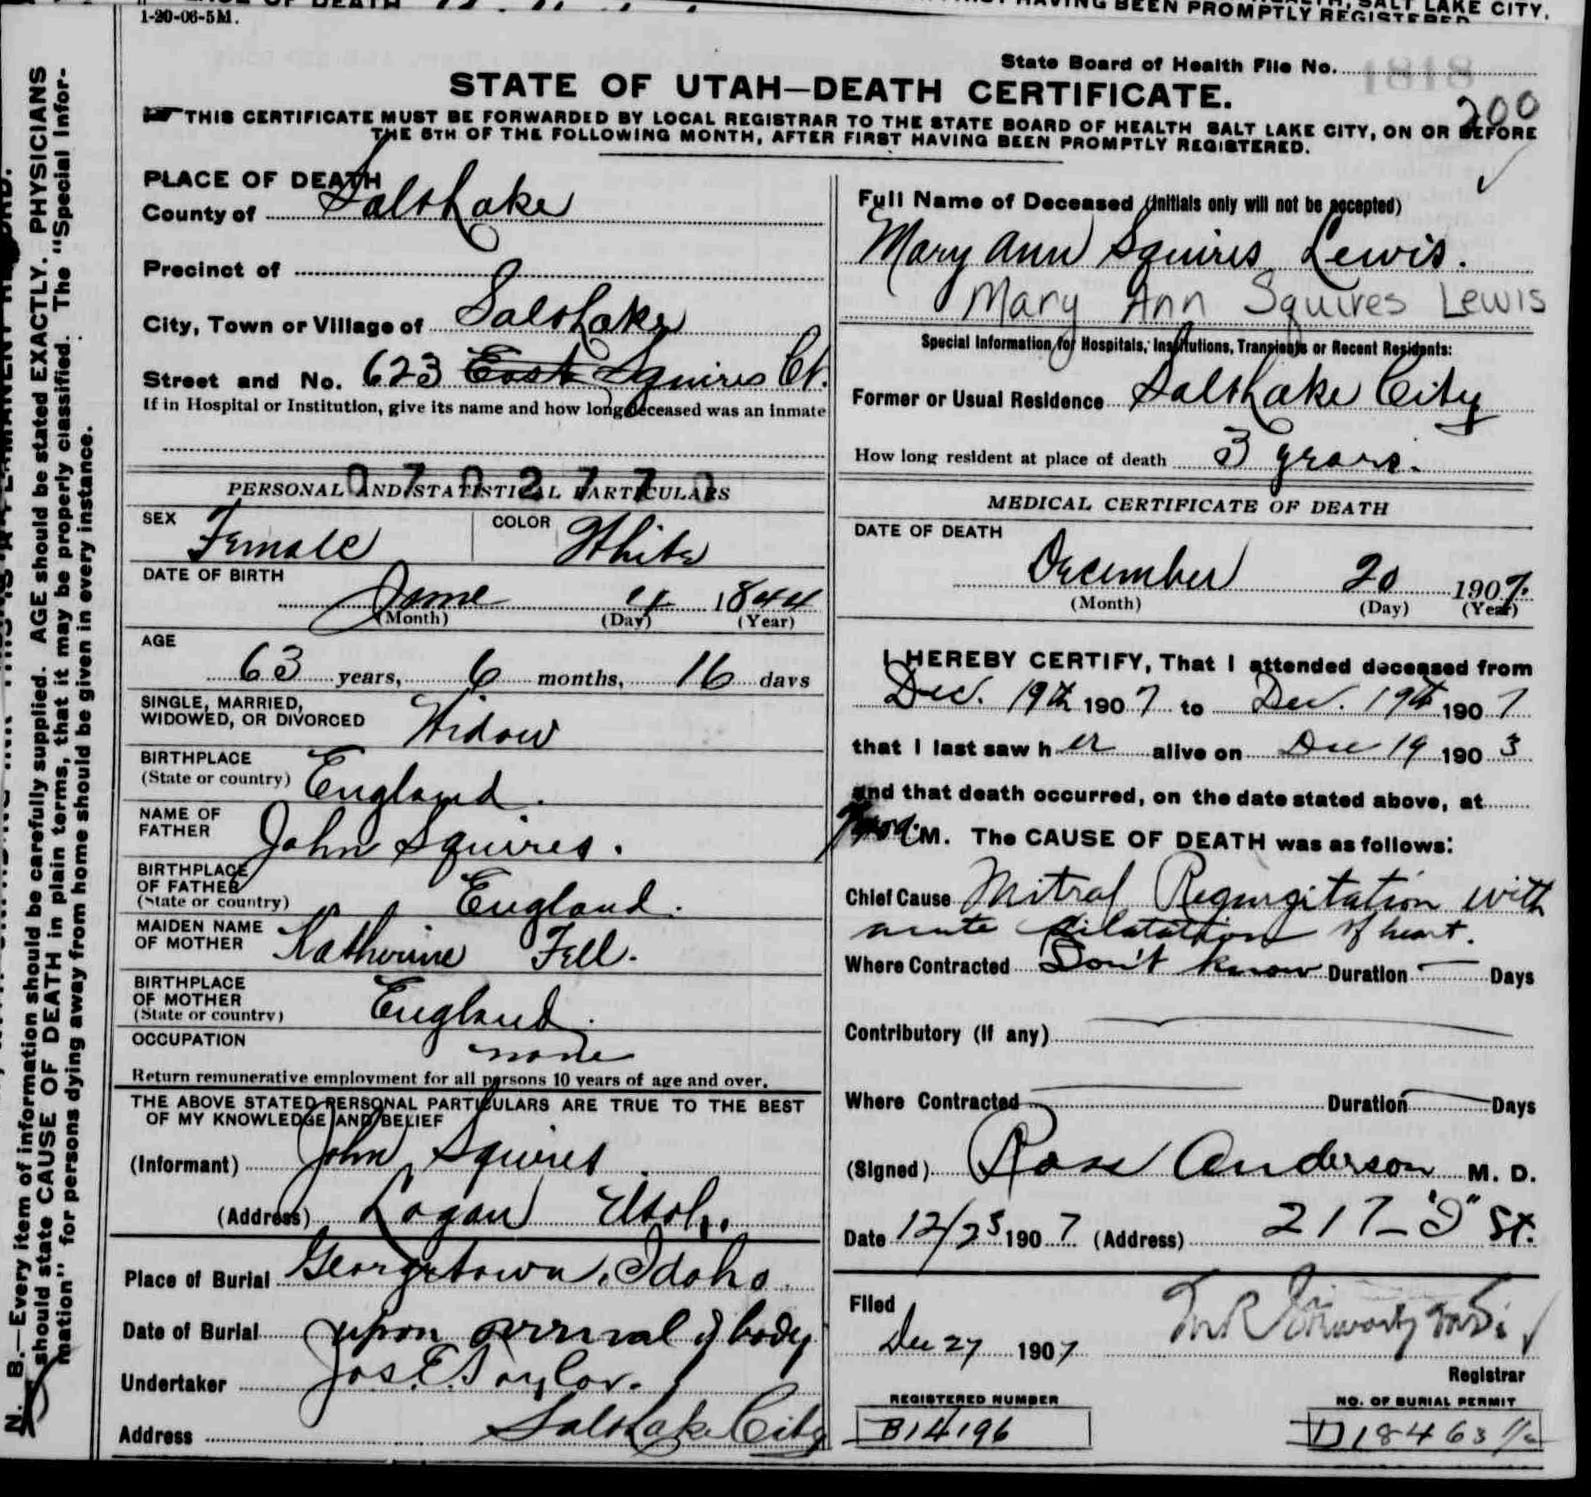 1-20-06-5M.
HAVING BEEN PROMPTLY REGISTERED
SALT LAKE CITY,
State Board of Health File No. 1818
STATE OF UTAH—DEATH CERTIFICATE.
200
THIS CERTIFICATE MUST BE FORWARDED BY LOCAL REGISTRAR TO THE STATE BOARD OF HEALTH SALT LAKE CITY, ON OR BEFORE
THE 5TH OF THE FOLLOWING MONTH, AFTER FIRST HAVING BEEN PROMPTLY REGISTERED.
PLACE OF DEATH
County of Salt Lake
Precinct of
City, Town or Village of Salt Lake
Street and No. 623 East Squires Ct.
If in Hospital or Institution, give its name and how long deceased was an inmate
0702770
PERSONAL AND STATISTICAL PARTICULARS
SEX Female COLOR White
DATE OF BIRTH
June 4 1844
(Month) (Day) (Year)
AGE
63 years, 6 months, 16 days
SINGLE, MARRIED,
WIDOWED, OR DIVORCED Widow
BIRTHPLACE
(State or country) England.
NAME OF
FATHER John Squires.
BIRTHPLACE
OF FATHER
(State or country) England.
MAIDEN NAME
OF MOTHER Katherine Fell.
BIRTHPLACE
OF MOTHER
(State or country) England.
OCCUPATION
none
Return remunerative employment for all persons 10 years of age and over.
THE ABOVE STATED PERSONAL PARTICULARS ARE TRUE TO THE BEST
OF MY KNOWLEDGE AND BELIEF
(Informant) John Squires.
(Address) Logan Utah.
Place of Burial Georgetown, Idaho.
Date of Burial upon arrival of body
Undertaker Jos. E. Taylor.
Address Salt Lake City
Full Name of Deceased (Initials only will not be accepted)
Mary Ann Squires Lewis.
Mary Ann Squires Lewis
Special Information for Hospitals, Institutions, Transients or Recent Residents:
Former or Usual Residence Salt Lake City
How long resident at place of death 3 years.
MEDICAL CERTIFICATE OF DEATH
DATE OF DEATH
December 20 1907.
(Month) (Day) (Year)
I HEREBY CERTIFY, That I attended deceased from
Dec. 19th 1907 to Dec. 19th 1907
that I last saw her alive on Dec 19 1903
and that death occurred, on the date stated above, at
M. The CAUSE OF DEATH was as follows:
Chief Cause Mitral Regurgitation with
acute dilatation of heart.
Where Contracted Don't know Duration — Days
Contributory (if any)
Where Contracted Duration Days
(Signed) Ross Anderson M. D.
Date 12/23 1907 (Address) 217- St.
Filed
Dec 27 1907
Registrar
REGISTERED NUMBER
B14196
NO. OF BURIAL PERMIT
D18463
N. B.—Every item of information should be carefully supplied. AGE should be stated EXACTLY. PHYSICIANS
should state CAUSE OF DEATH in plain terms, that it may be properly classified. The "Special Infor-
mation" for persons dying away from home should be given in every instance.